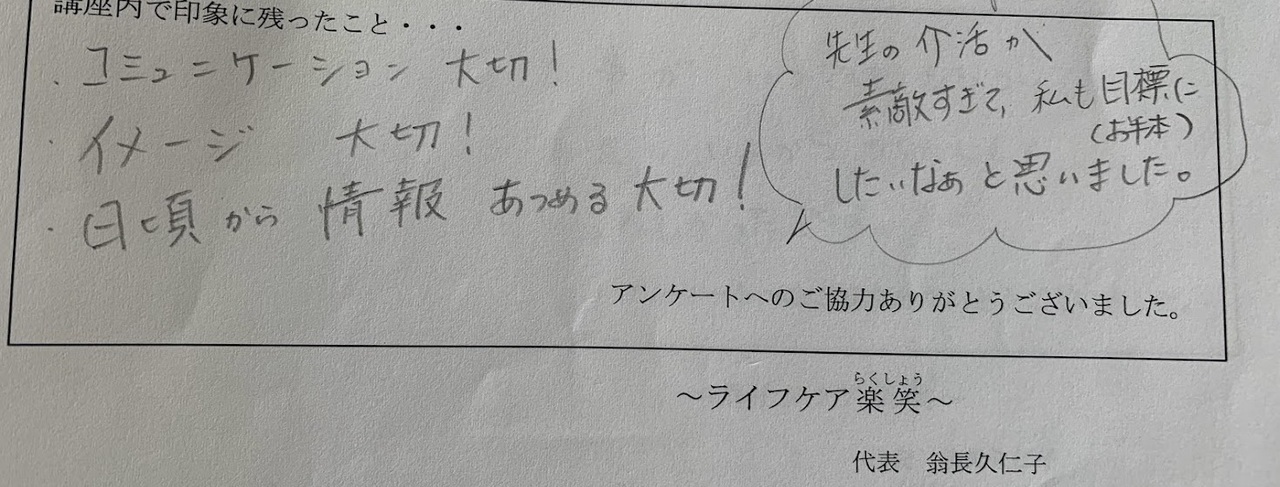 講座内で印象に残ったこと・・・
・コミュニケーション 大切!
・イメージ 大切!
・日頃から 情報 あつめる 大切!
先生の 介活が
素敵すぎて、私も目標に
(お手本)
したいなぁと思いました。
アンケートへのご協力ありがとうございました。
らくしょう
～ライフケア楽笑～
代表 翁長久仁子